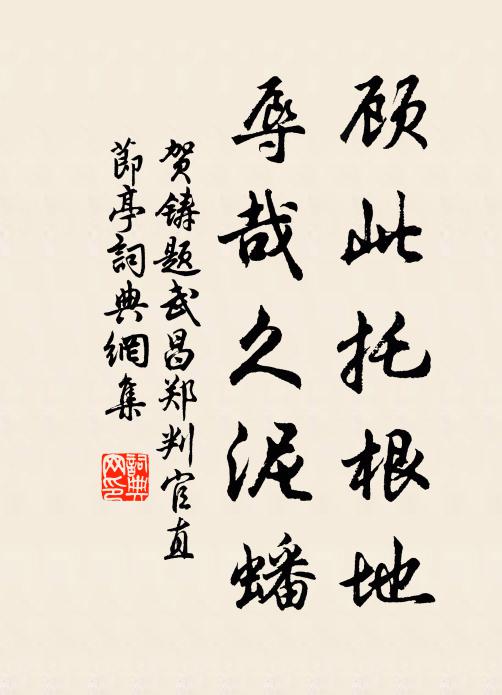 顾此托根地
辱哉久泥蟠
贺铸题武昌郑判官直
节亭词典網集
詞典
网印